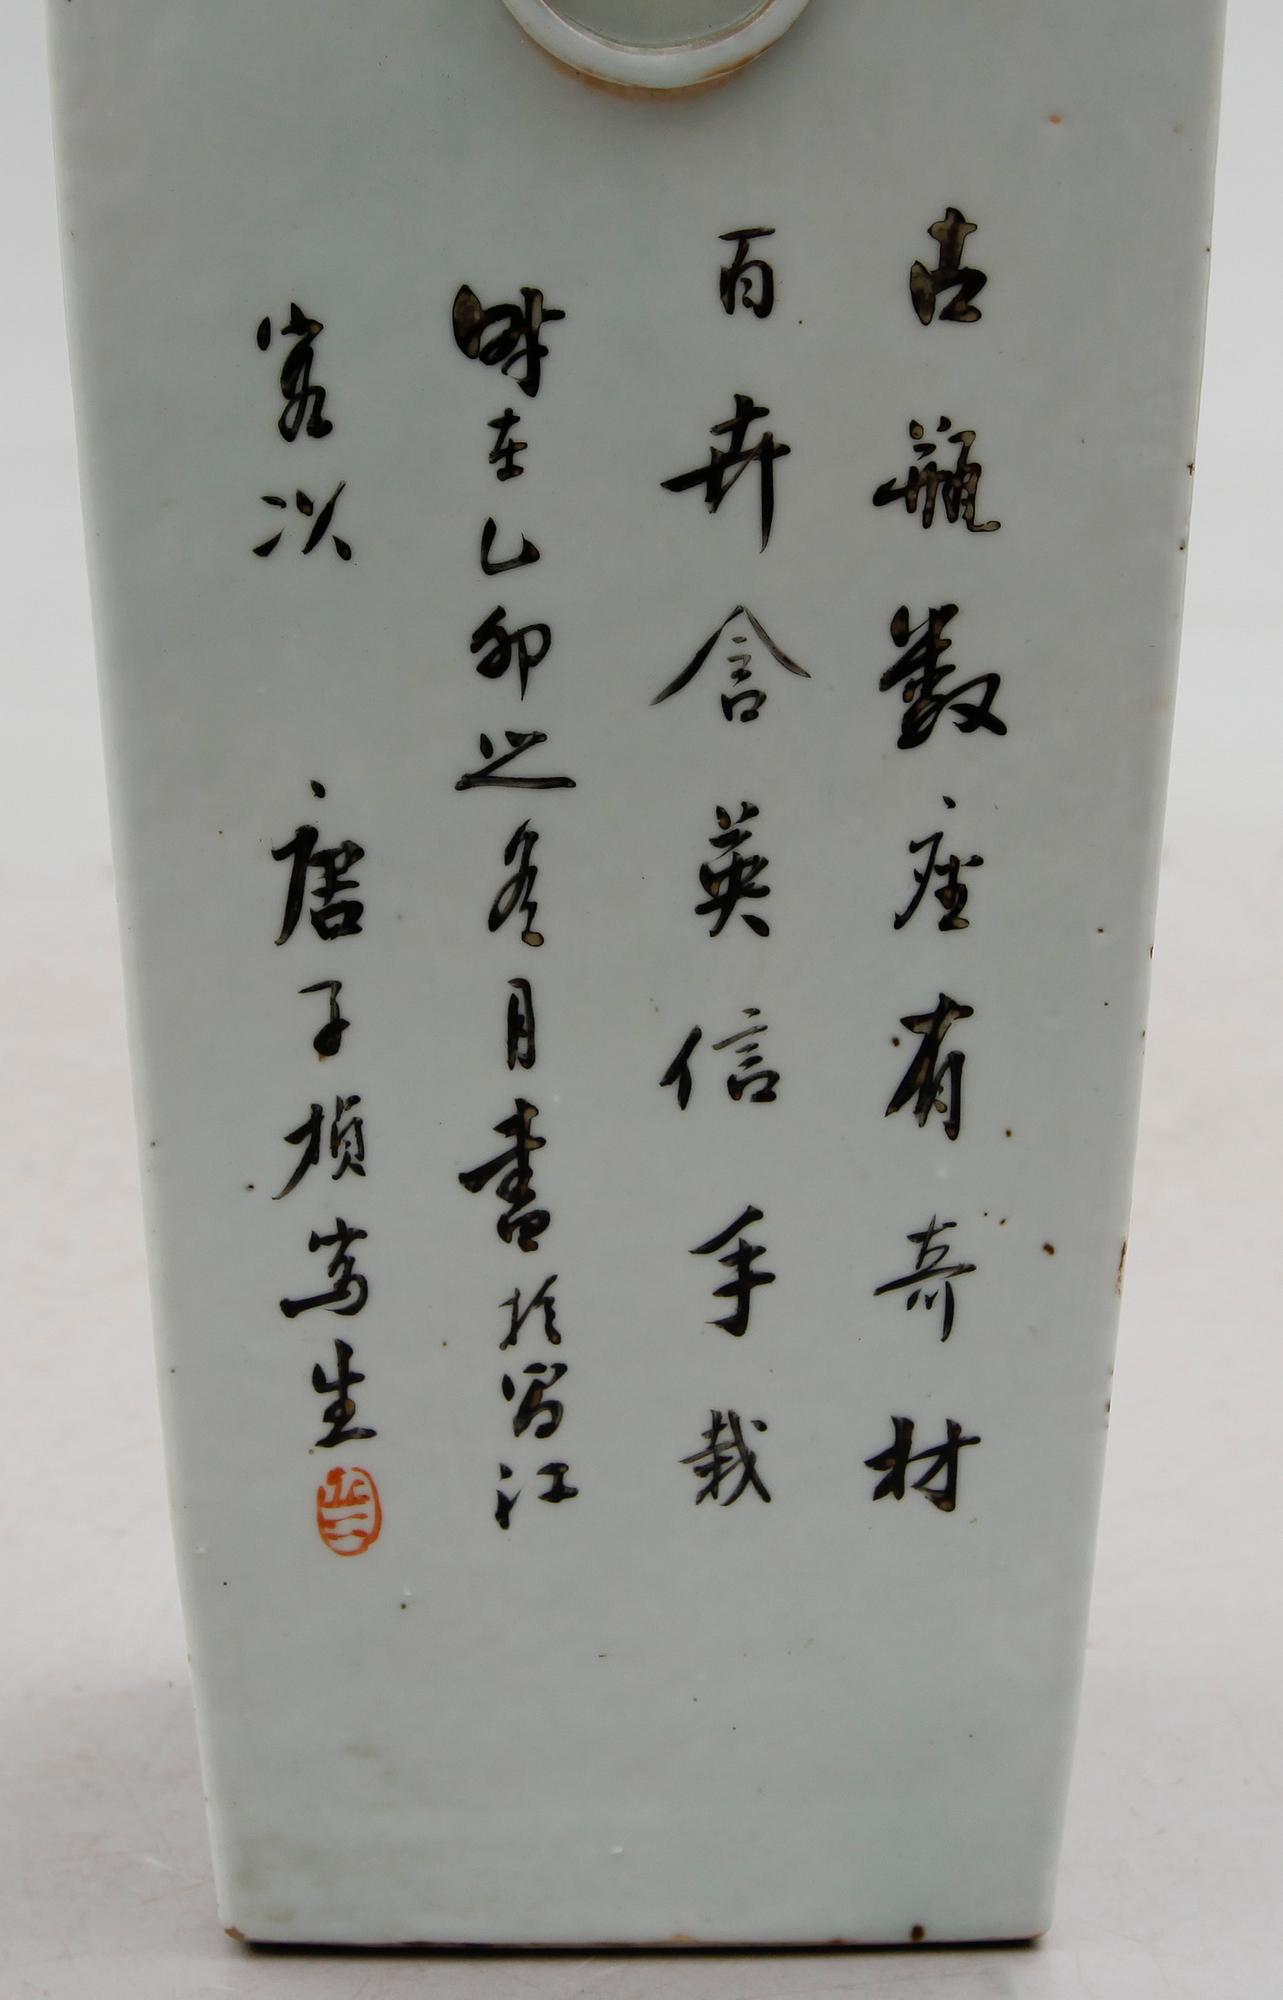 古瓶數座有奇材
百卉含英信手栽
時在乙卯之冬月書於昌江
客次 唐子楨寫生